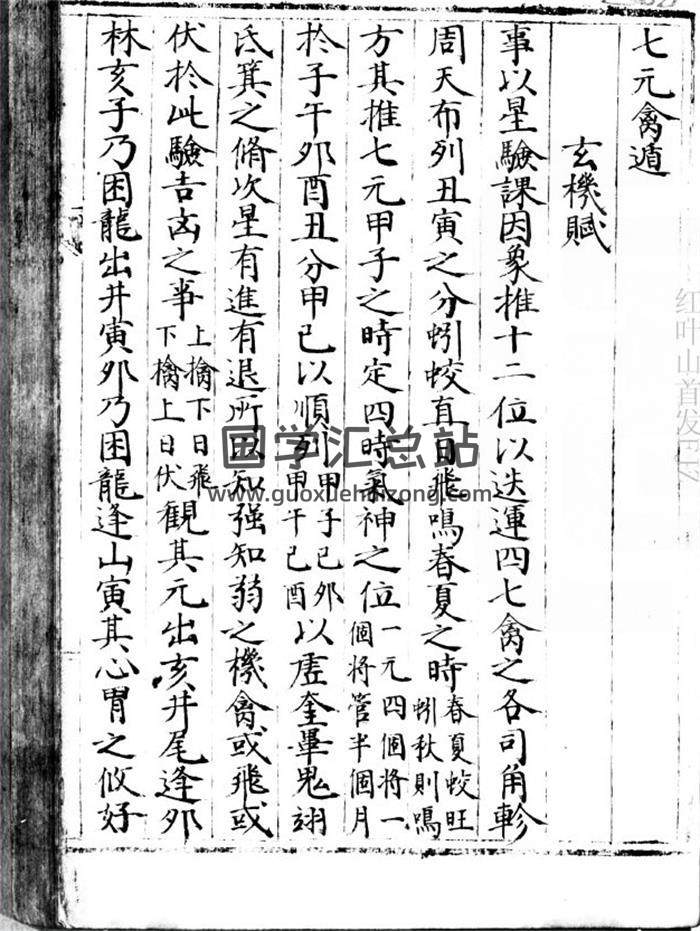 七元禽遁
玄機賦
事以星驗課因象推十二位以迭運四七禽之各司角軫
周天布列丑寅之分蚓蛟直日飛鳴春夏之時春夏蛟旺蚓秋則鳴
方其推七元甲子之時定四時氣神之位一元四個将一個将管半個月
於子午夘酉丑分甲己以順列甲子己夘甲午己酉以虛奎畢鬼翊
氐箕之脩次星有進有退所以知强知弱之機禽或飛或
伏於此驗吉凶之事上擒下日飛下擒上日伏觀其元出亥井尾逢夘
林亥子乃困龍出井寅夘乃困龍逢山寅其心胃之攸好
国学汇总站
www.guoxuehuizong.com
红叶山首发